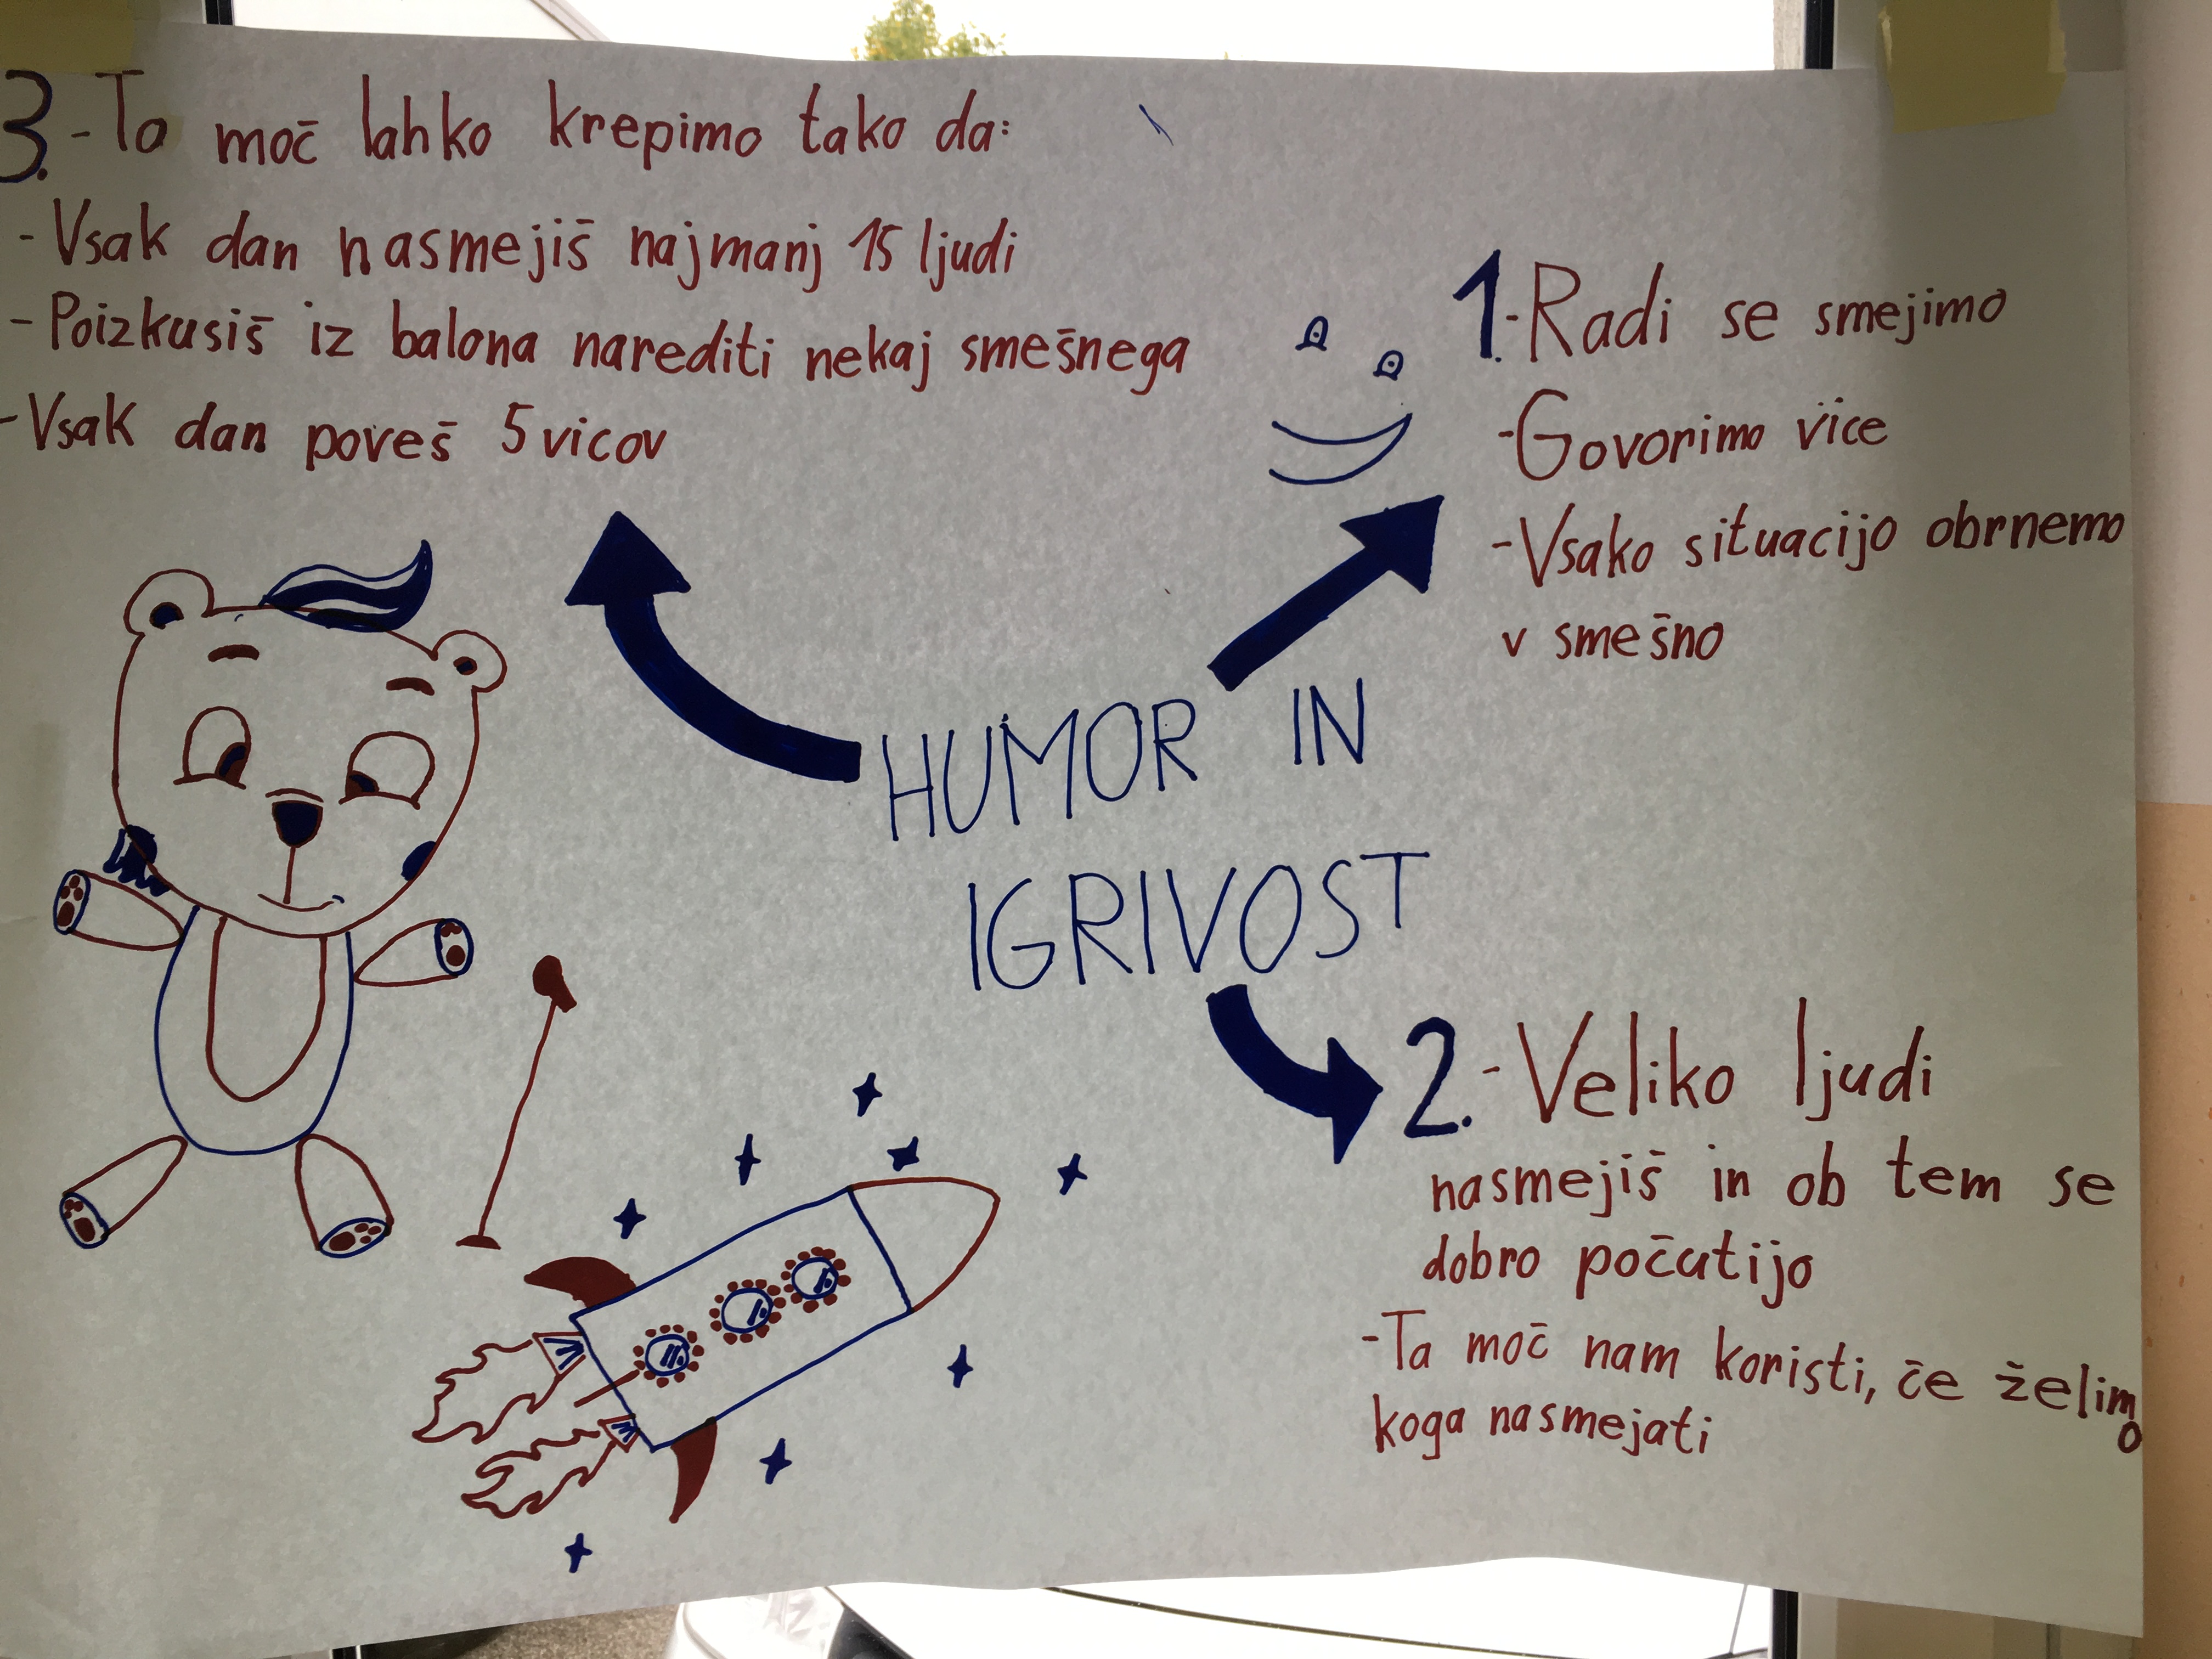 HUMOR IN
IGRIVOST
1.-Radi se smejimo
-Govorimo vice
-Vsako situacijo obrnemo
v smešno
2.-Veliko ljudi
nasmejiš in ob tem se
dobro počutijo
-Ta moč nam koristi, če želimo
koga nasmejati
3.-To moč lahko krepimo tako da:
-Vsak dan nasmejiš najmanj 15 ljudi
-Poizkusiš iz balona narediti nekaj smešnega
-Vsak dan poveš 5 vicov